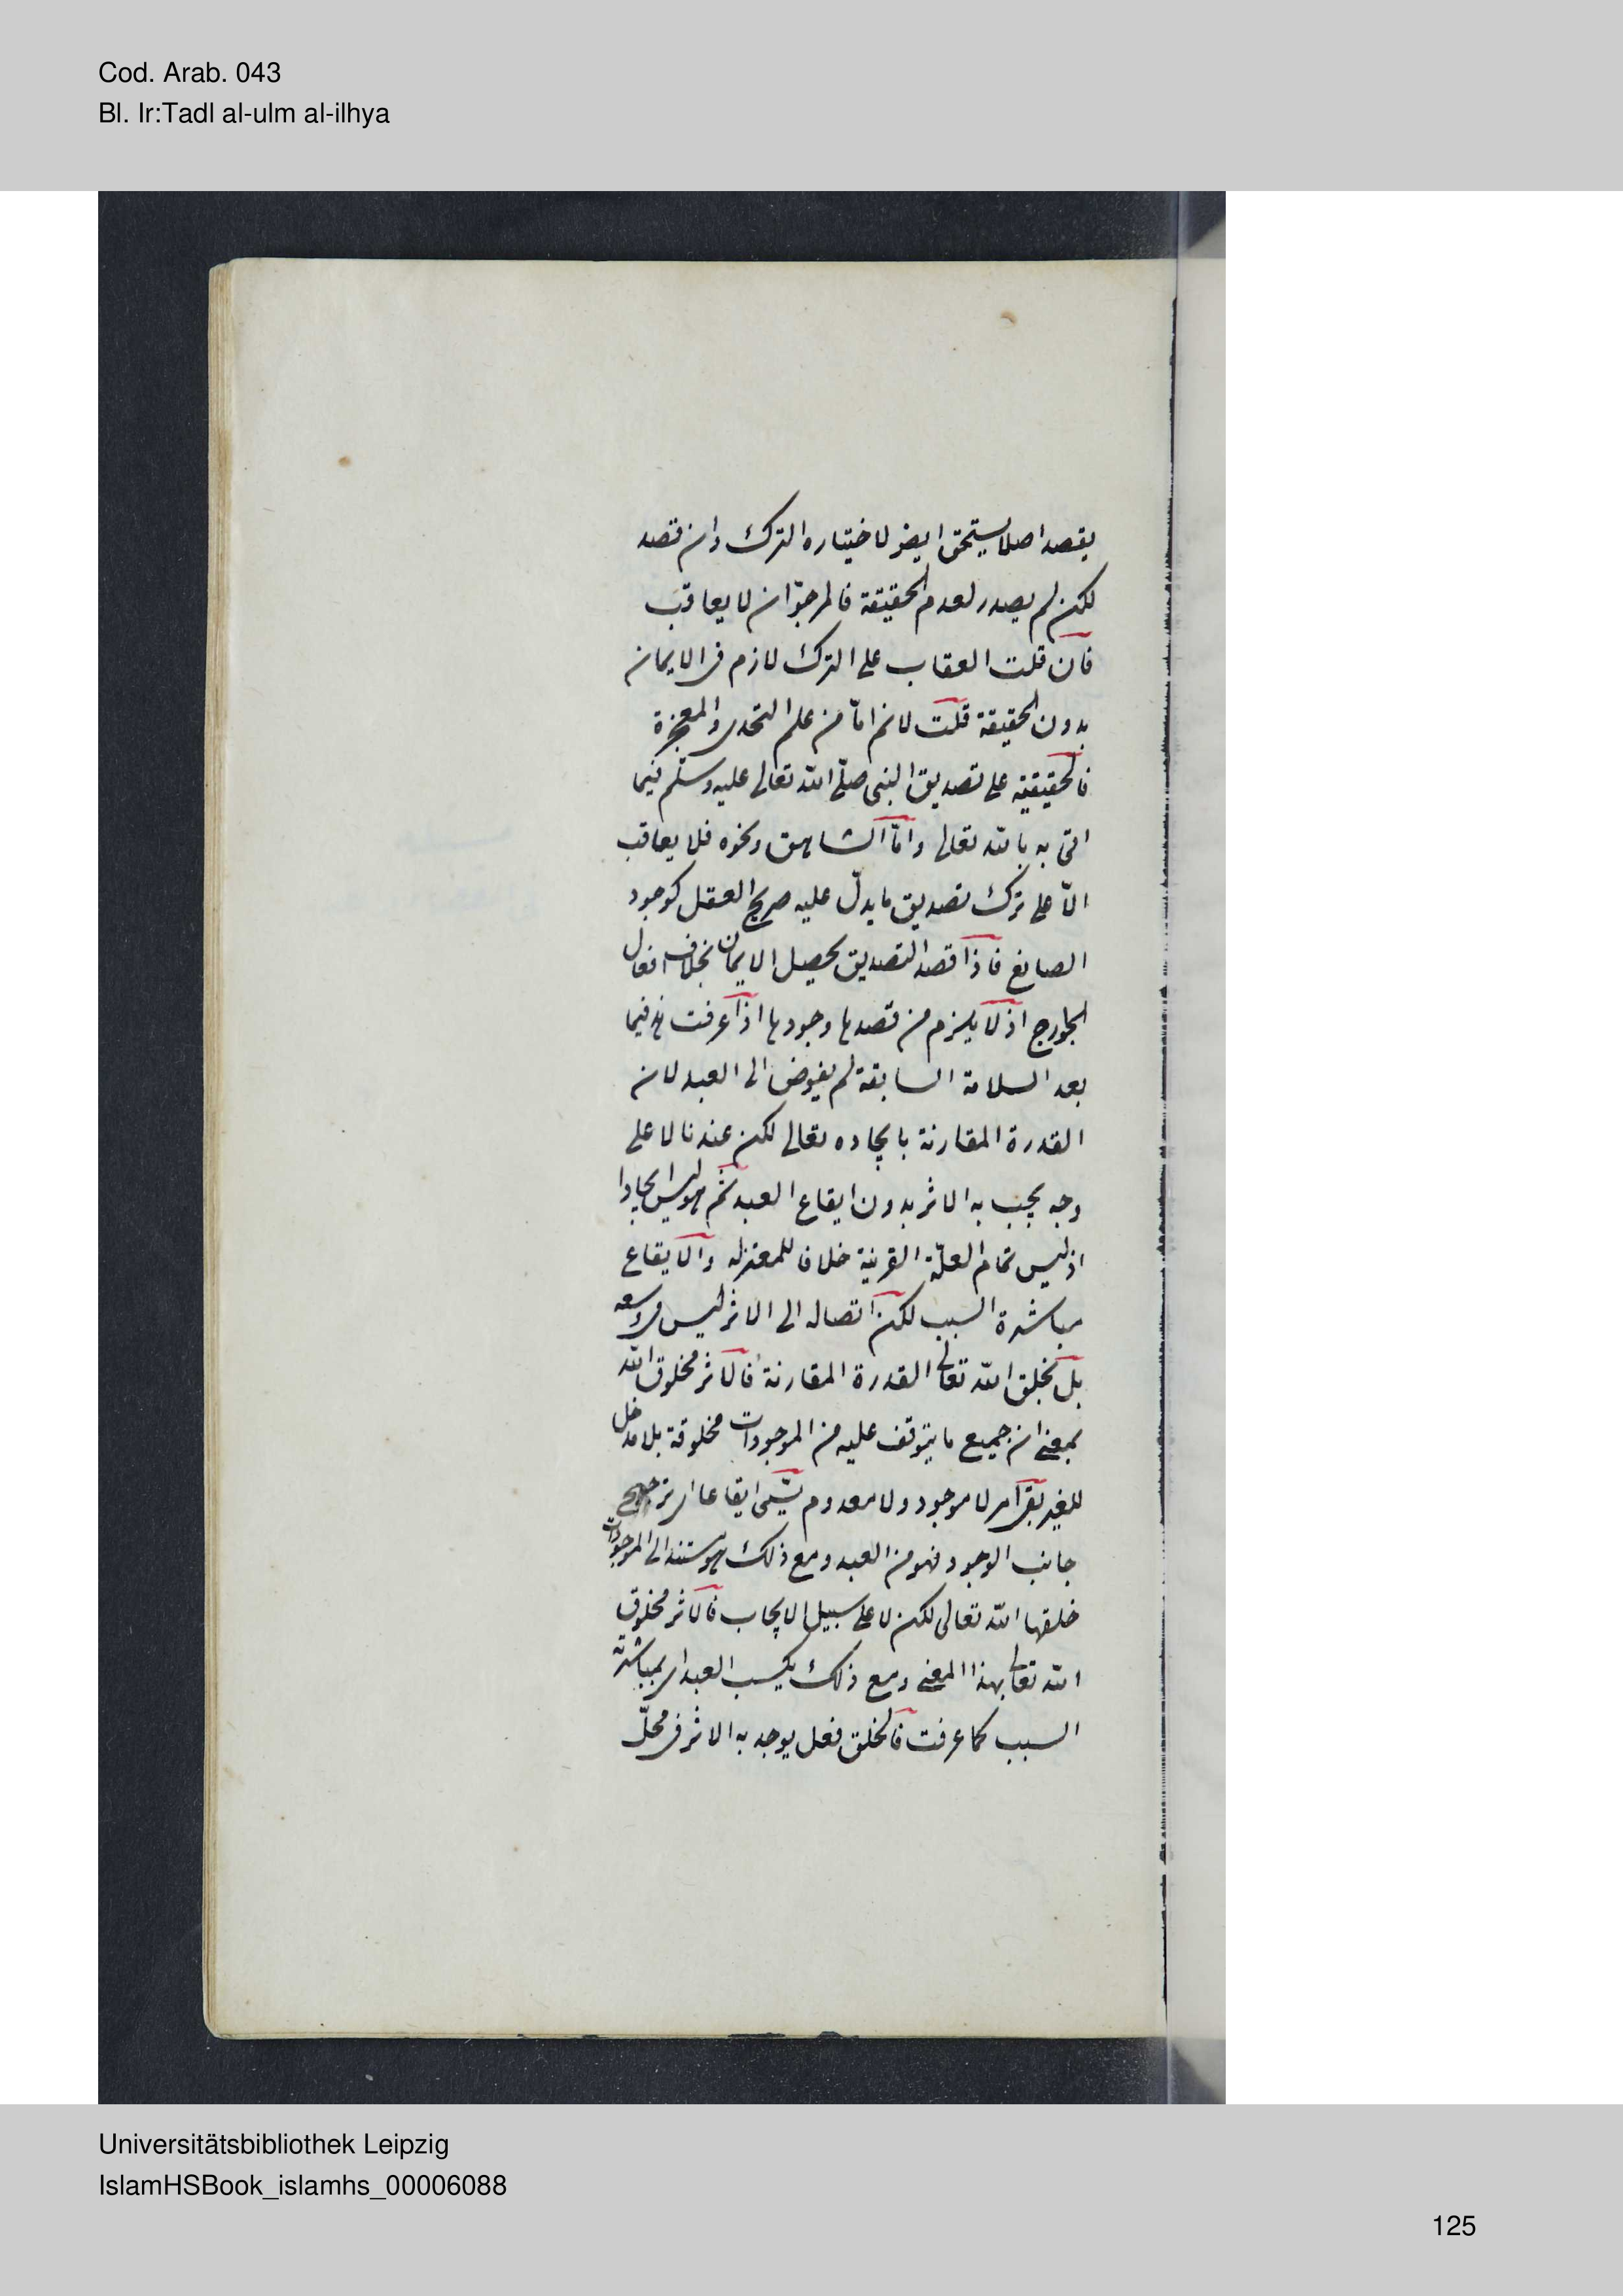 Cod. Arab. 043
Bl. Ir:Tadl al-ulm al-ilhya
يقصد اصلا يستحق ايضا لاختياره الترك وان قصد
لكن لم يصدر لعدم الحقيقة فالمرجوّ ان لا يعاقب
فان قلت العقاب على الترك لازم فى الايمان
بدون الحقيقة قلت لانم امّا من علم التحدى والمعجزة
فالحقيقية على تصديق النبى صلّى الله تعالى عليه وسلّم فيما
اتى به بالله تعالى وامّا الشاهق ونحوه فلا يعاقب
الّا على ترك تصديق ما يدلّ عليه صريح العقل كوجود
الصانع فاذا قصد التصديق يحصل الايمان بخلاف افعال
الجوارح اذ لا يلزم من قصدها وجودها اذا عرفت هذا فيما
بعد السلامة السابقة لم يفوض الى العبد لان
القدرة المقارنة بايجاده تعالى لكن عندنا لا على
وجه يجب به الاثر بدون ايقاع العبد ثم هو ليس ايجادا
اذ ليس تمام العلّة القرينة خلافا للمعتزله والايقاع
مباشرة السبب لكن اتصاله الى الاثر ليس فى وسعه
بل بخلق الله تعالى القدرة المقارنة فالاثر مخلوق الله
بمعنى ان جميع ما يتوقف عليه من الموجودات مخلوقة بلا مدخل
للغير بقى امر لا موجود ولا معدوم يسمّى ايقاعا اى ترجيح
جانب الوجود فهو من العبد ومع ذلك هو مستند الى الموجودات
خلقها الله تعالى لكن لا على سبيل الايجاب فالاثر مخلوق
الله تعالى بهذا المعنى ومع ذلك يكسب العبد اى بمباشرته
السبب كما عرفت فالخلق فعل يوجد به الاثر فى محلّ
Universitätsbibliothek Leipzig
IslamHSBook_islamhs_00006088
125